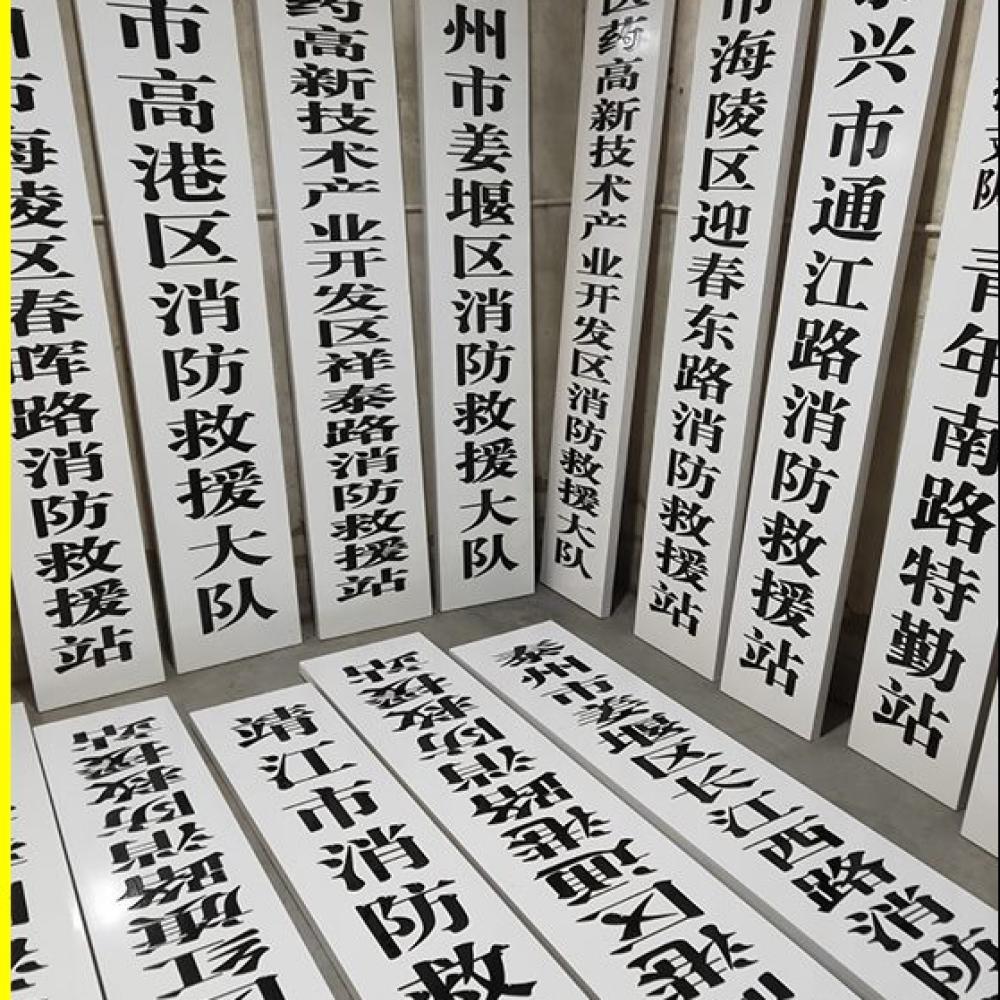 市海陵区春晖路消防救援站
市高港区消防救援大队
药高新技术产业开发区祥泰路消防救援站
州市姜堰区消防救援大队
医药高新技术产业开发区消防救援大队
市海陵区迎春东路消防救援站
兴市通江路消防救援站
青年南路特勤站
红旗路消防救援站
靖江市消防救
港区通港路消防救援站
泰州市姜堰区长江西路消防